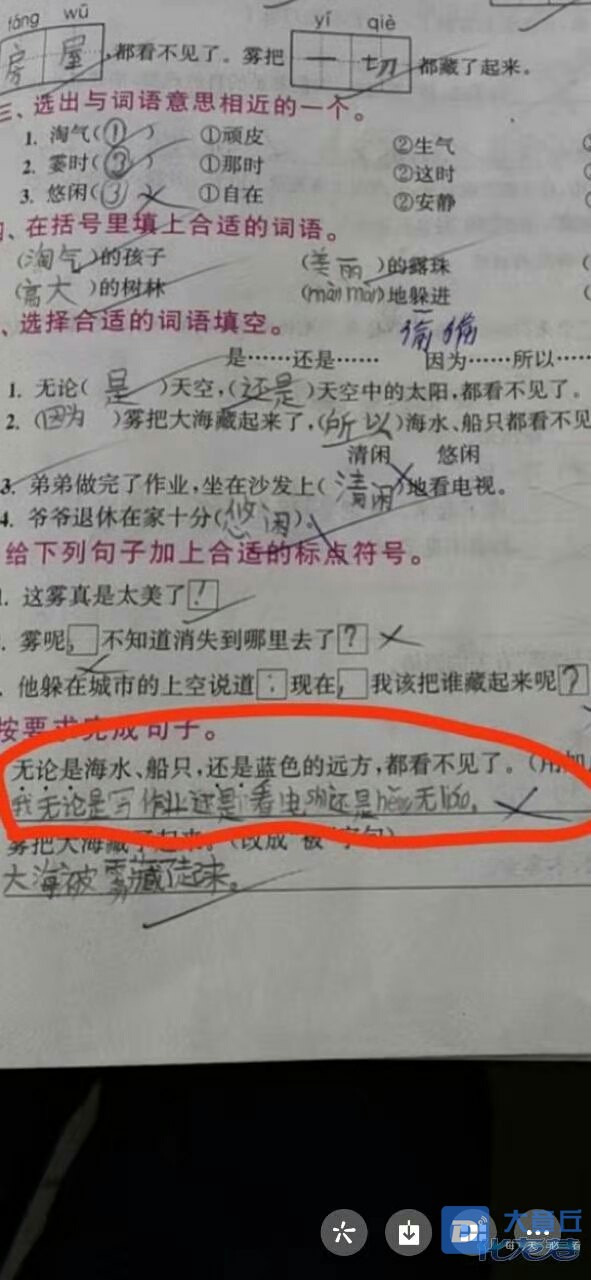 fáng wū yí qiè
房屋,都看不见了。雾把一切都藏了起来。
三、选出与词语意思相近的一个。
1. 淘气(①) ①顽皮 ②生气
2. 霎时(③) ①那时 ②这时
3. 悠闲(③) ①自在 ②安静
、在括号里填上合适的词语。
(淘气)的孩子 (美丽)的露珠
(高大)的树林 (màn màn)地躲进
偷偷
、选择合适的词语填空。
是……还是…… 因为……所以……
1. 无论(是)天空,(还是)天空中的太阳,都看不见了。
2. (因为)雾把大海藏起来了,(所以)海水、船只都看不见
清闲 悠闲
3. 弟弟做完了作业,坐在沙发上(清闲)地看电视。
4. 爷爷退休在家十分(悠闲)。
给下列句子加上合适的标点符号。
. 这雾真是太美了!
. 雾呢,不知道消失到哪里去了?
. 他躲在城市的上空说道:现在,我该把谁藏起来呢?
按要求完成句子。
无论是海水、船只,还是蓝色的远方,都看不见了。(用加
我无论是写作业还是看电shì还是hěn无liáo。
雾把大海藏了起来。(改成“被”字句)
大海被雾藏了起来。
每天必看